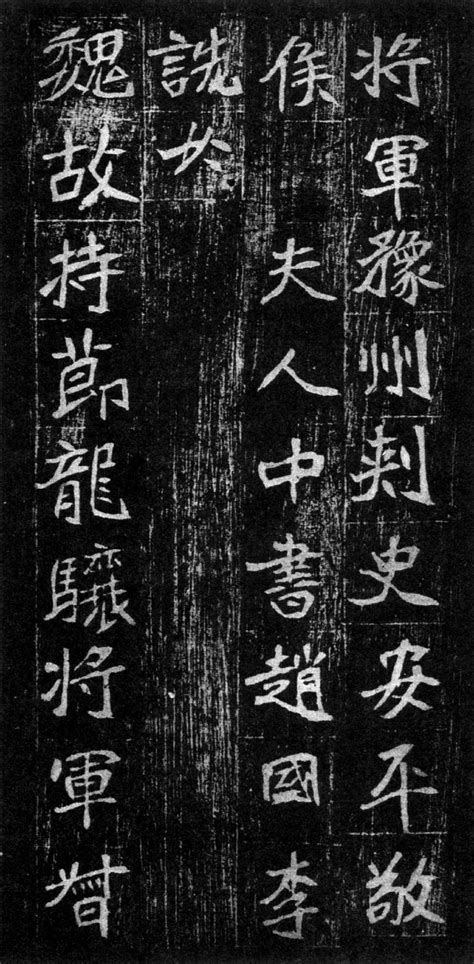 将軍豫州刾史安平敬
侯 夫人中書趙國李
詵女
魏故持莭龍驤将軍督